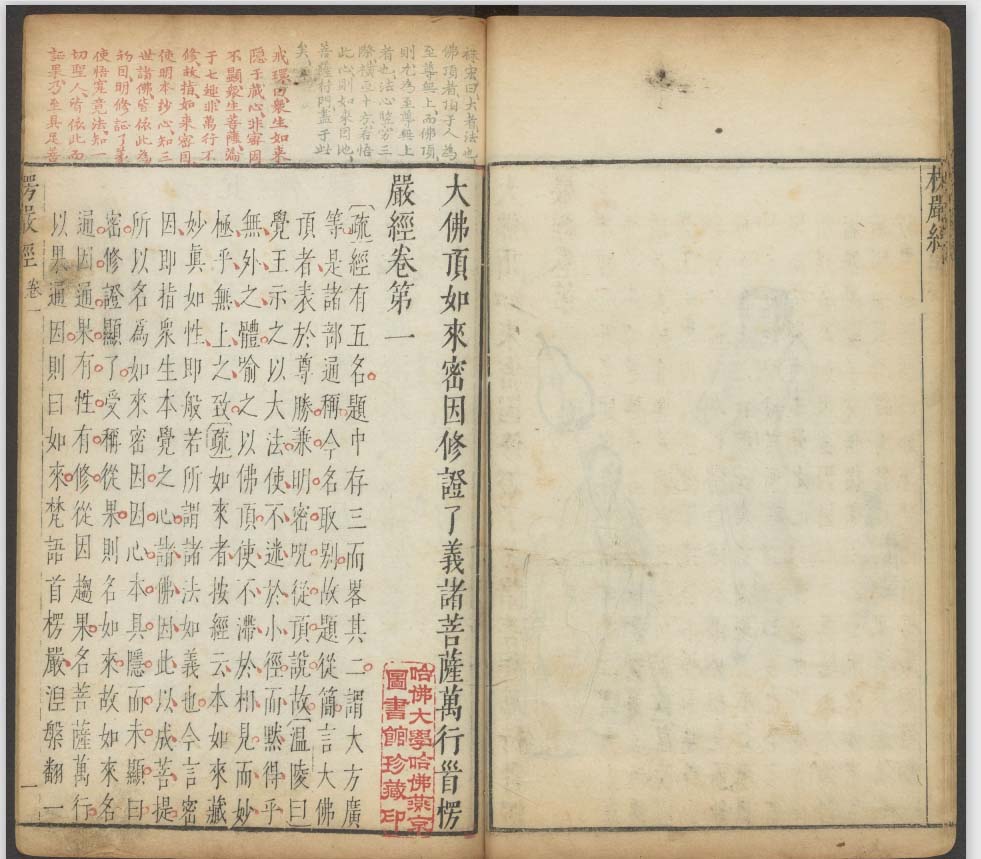 楞嚴經
袾宏曰大者法也
佛頂者頂于人為
至尊無上而佛頂
則尤為至尊無上
者也法心豎窮三
際橫亙十方者悟
此心則如來因地
菩薩行門盡于此
矣
戒環曰眾生如來
隱于藏心非密因
不顯眾生菩薩淪
于七趣非萬行不
修故指如來密因
使明本妙心知三
世諸佛皆依此為
初因明修証了義
使悟究竟法知一
切聖人皆依此而
証果乃至具足菩
大佛頂如來密因修證了義諸菩薩萬行首楞
嚴經卷第一
哈佛大學哈佛燕京
圖書館珍藏印
〔疏〕經有五名。題中存三而畧其二。謂大方廣
等。是諸部通稱。今名取別。故題從簡。言大佛
頂者。表於尊勝。兼明密呪。從頂說故。〔溫陵曰〕
覺王示之以大法。使不迷於小徑。而黙得乎
無外之體。喻之以佛頂。使不滯於相見。而妙
極乎無上之致。〔疏〕如來者。按經云。本如來藏
妙真如性。即般若所謂諸法如義也。今言密
因。即指眾生本覺之心。諸佛因此以成菩提。
所以名為如來密因。因心本具。隱而未顯曰
密。修證顯了。受稱從果。則名如來。故如來名
通因通果。有性有修。從因趨果。名菩薩萬行。
以果通因。則曰如來。梵語首楞嚴。湼槃翻一
楞嚴經 卷一 一